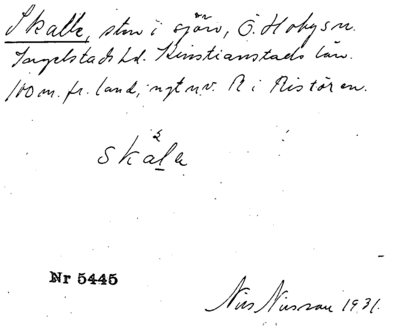 Skalle, sten i sjön, Ö. Hoby sn.
Ingelstads hd. Kristianstads län.
100 m. fr. land, ngt n.v. R i Ristören.
skála
Nr 5445
Nils Nilsson 1931.